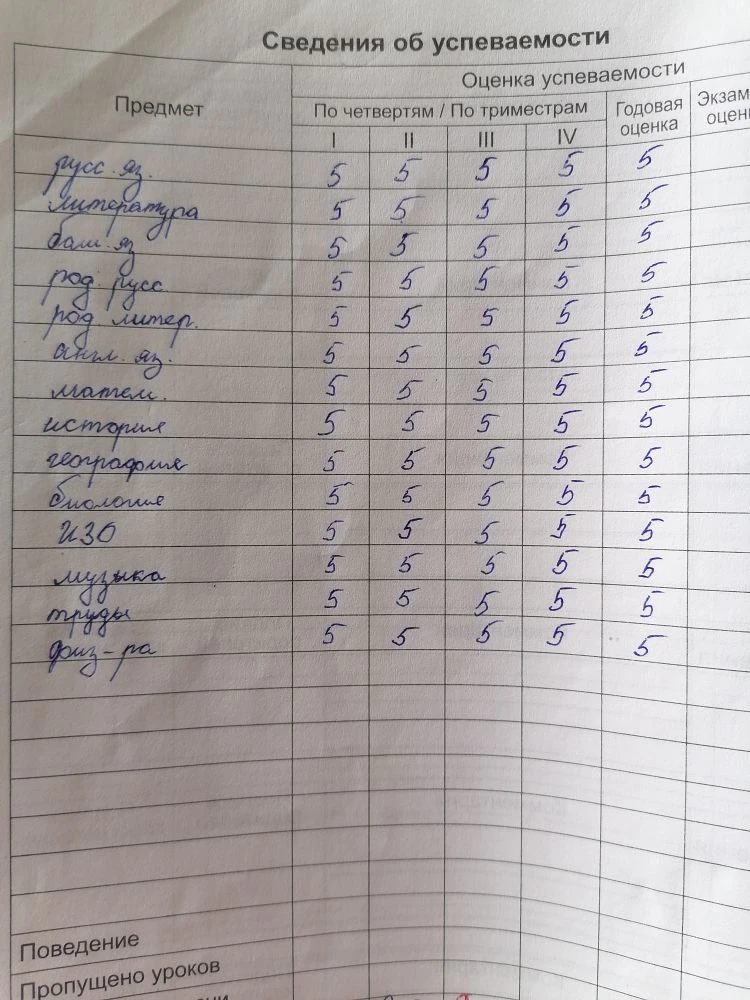 Сведения об успеваемости
Предмет
Оценка успеваемости
По четвертям / По триместрам
Годовая оценка
I II III IV
русс. яз. 5 5 5 5 5
литература 5 5 5 5 5
баш. яз 5 5 5 5 5
род. русс. 5 5 5 5 5
род. литер. 5 5 5 5 5
англ. яз. 5 5 5 5 5
матем. 5 5 5 5 5
история 5 5 5 5 5
география 5 5 5 5 5
биология 5 5 5 5 5
ИЗО 5 5 5 5 5
музыка 5 5 5 5 5
труды 5 5 5 5 5
физ-ра 5 5 5 5 5
Поведение
Пропущено уроков